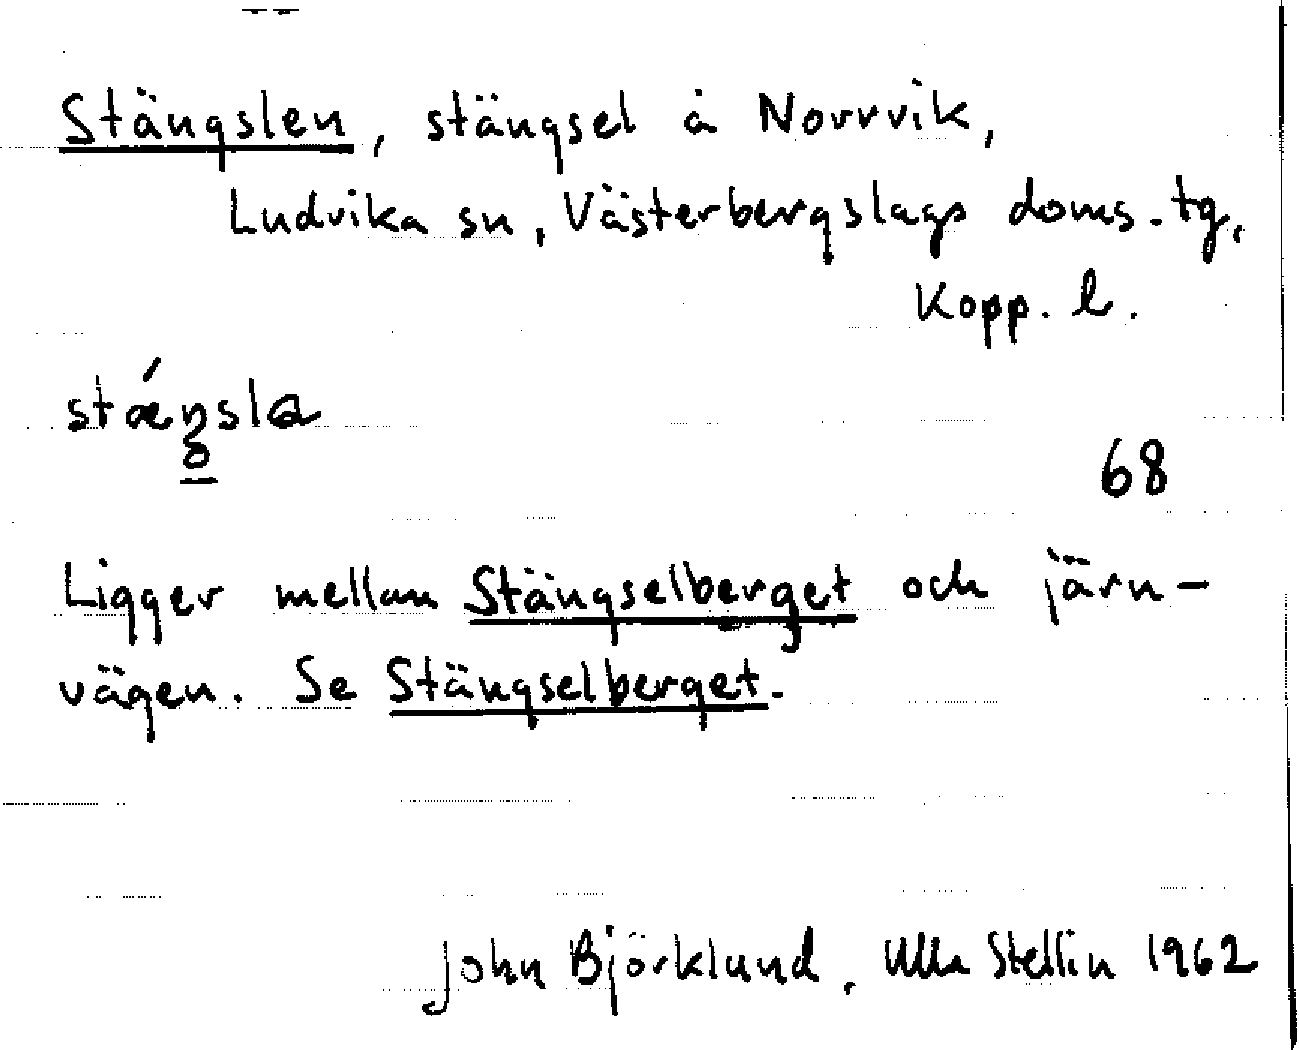 Stängslen, stängsel å Norrvik,
Ludvika sn, Västerbergslags doms.tg,
Kopp. l.
stǽŋ̥sla
68
Ligger mellan Stängselberget och järn-
vägen. Se Stängselberget.
John Björklund, Ulla Stellin 1962